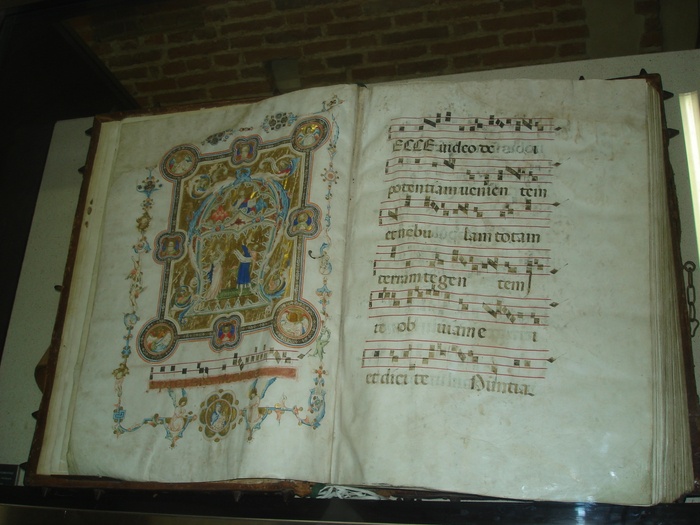 ECCE uideo de
potentiam uenien tem
et nebu lam totam
terram te gen tem
uiam e
et dici te Nuntia